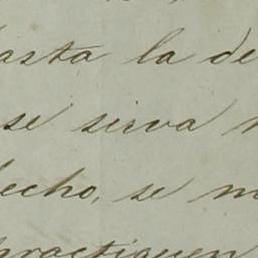 hasta la de
se sirva
hecho, se
practiquen